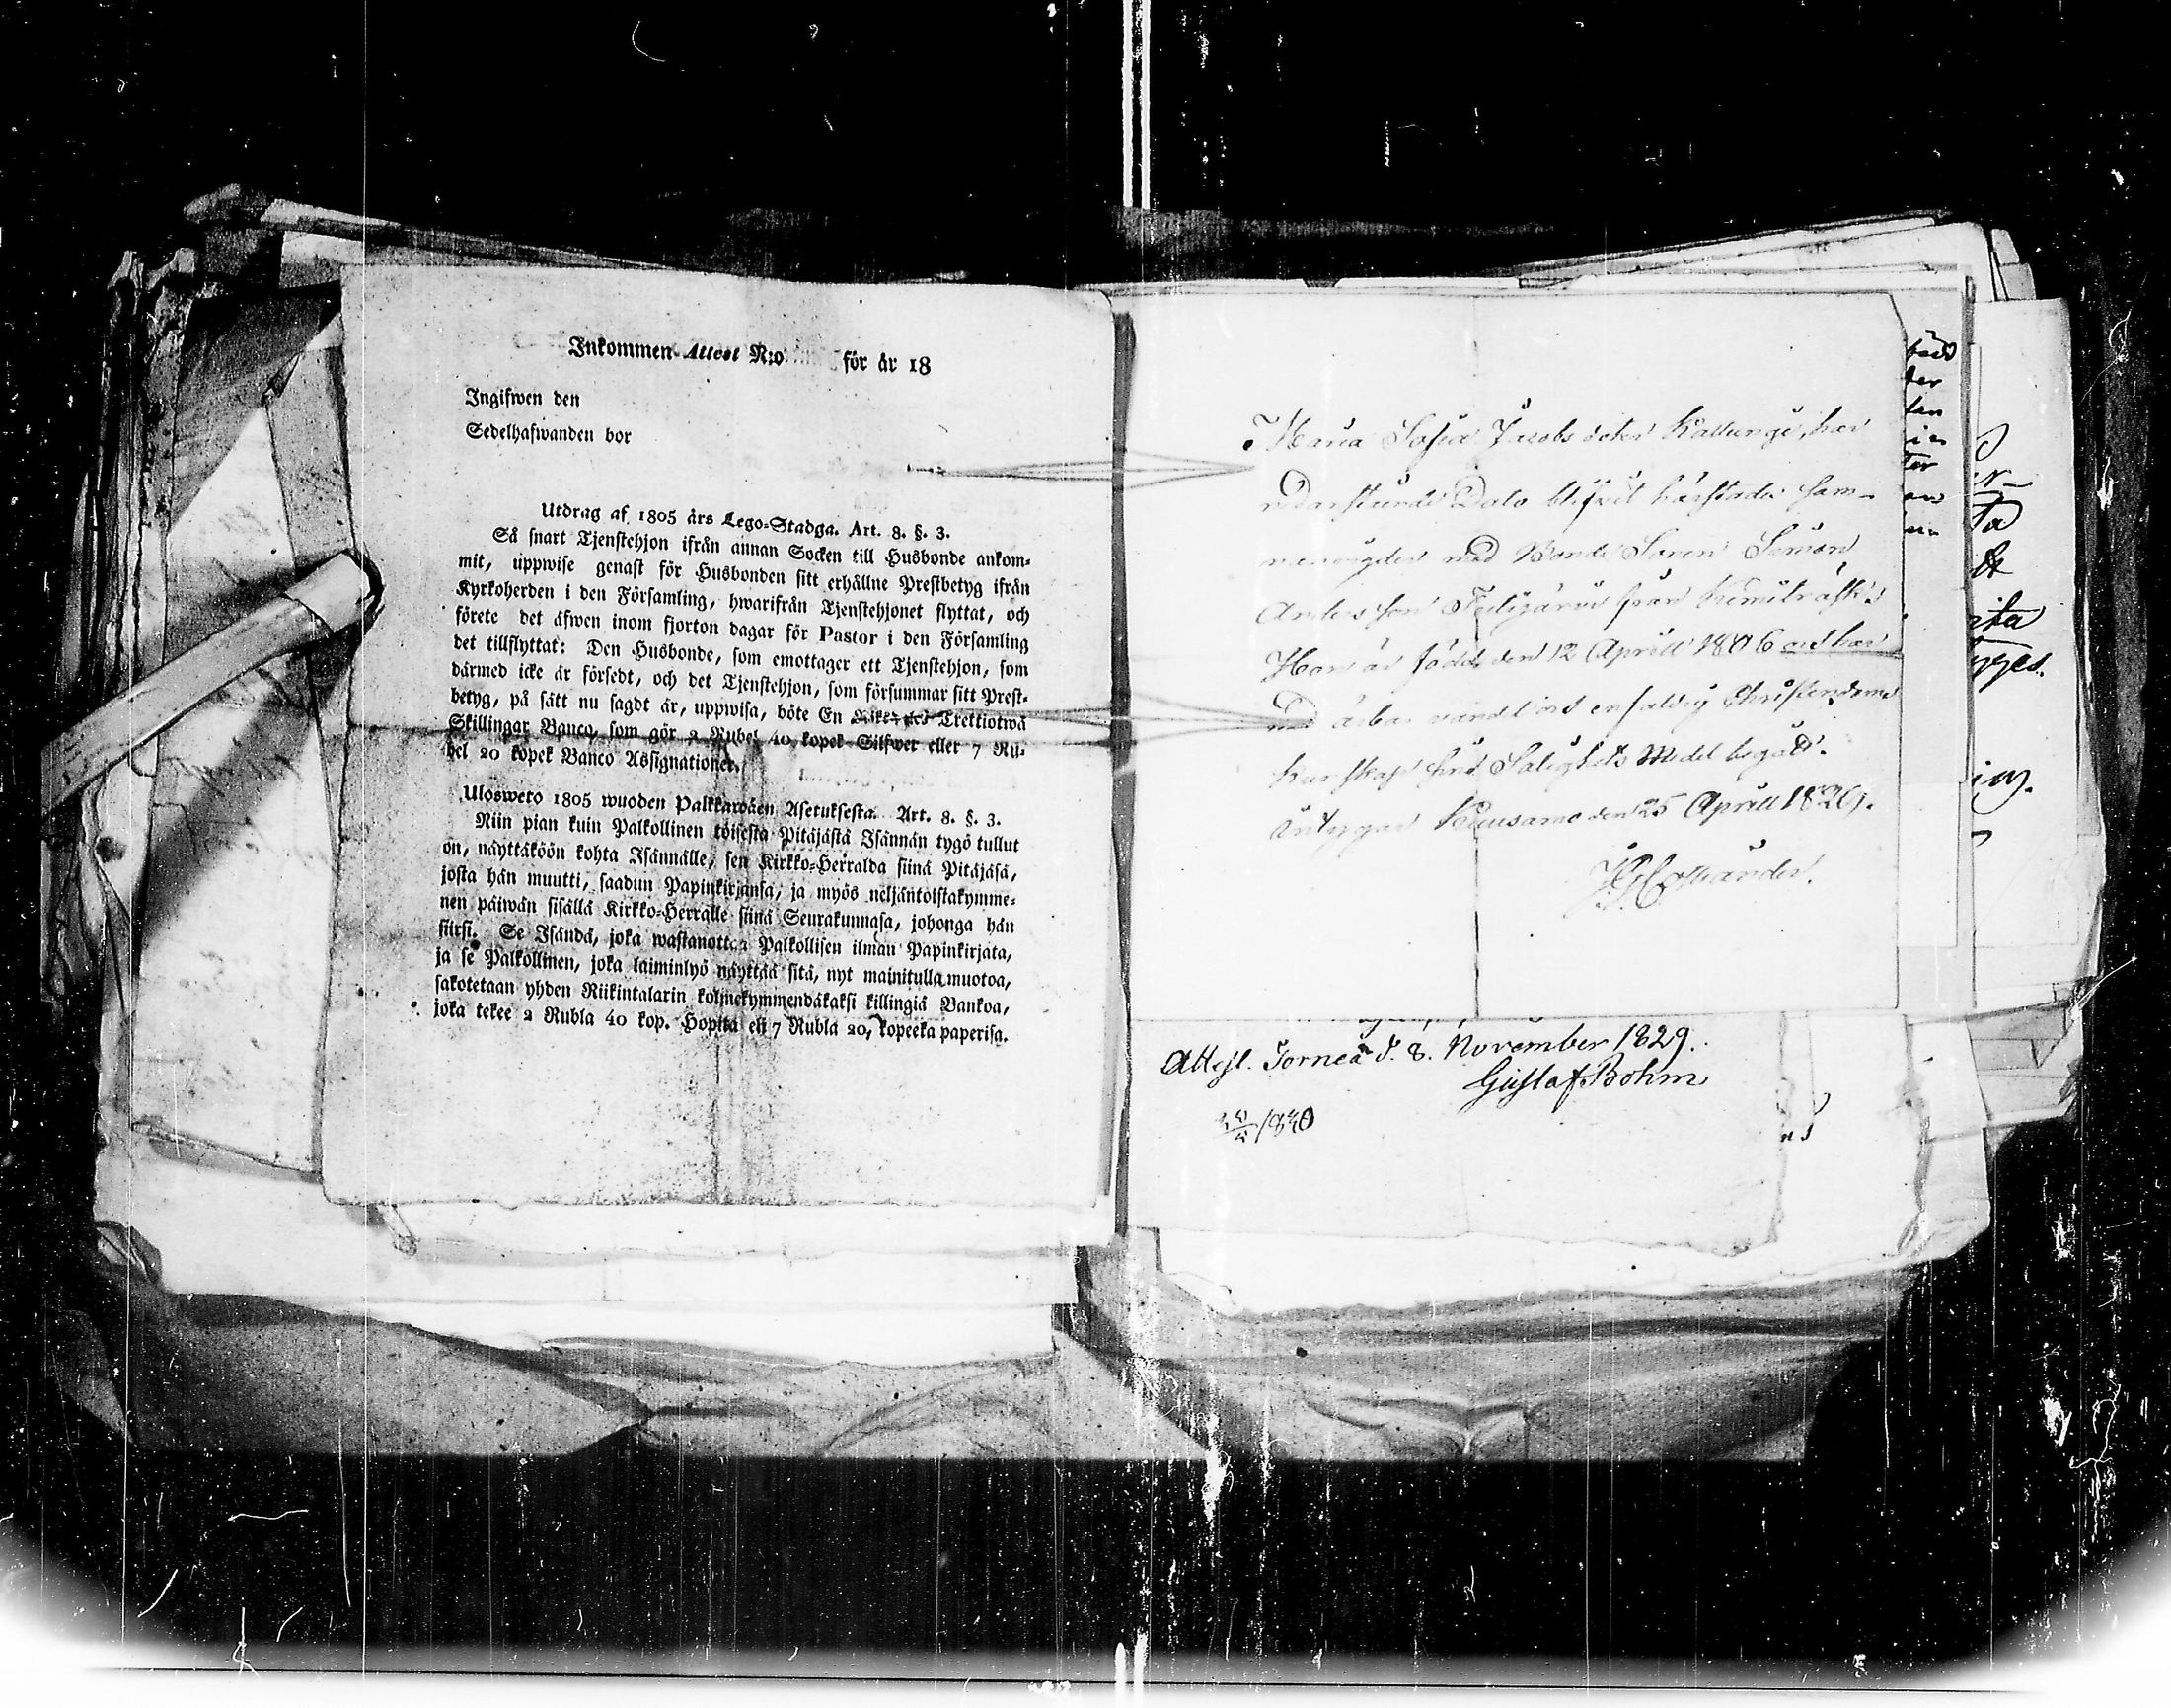 Inkommen Attest N:o för år 18
Ingifwen den
Sedelhafwanden bor
Utdrag af 1805 års Lego-Stadga. Art. 8. §. 3.
Så snart Tjenstehjon ifrån annan Socken till Husbonde ankom-
mit, uppwise genast för Husbonden sitt erhållne Prestbetyg ifrån
Kyrkoherden i den Församling, hwarifrån Tjenstehjonet flyttat, och
förete det äfwen inom fjorton dagar för Pastor i den Församling
det tillflyttat: Den Husbonde, som emottager ett Tjenstehjon, som
därmed icke är försedt, och det Tjenstehjon, som försummar sitt Prest-
betyg, på sätt nu sagdt är, uppwisa, böte En Trettiotwå
Skillingar Banco, som gör 2 Rubel 40 kopek Silfwer eller 7 Ru-
bel 20 kopek Banco Assignationer.
Ulosweto 1805 wuoden Palkkawäen Asetuksesta. Art. 8. §. 3.
Niin pian kuin Palkollinen toisesta Pitäjästä Isännän tygö tullut
on, näyttäköön kohta Isännälle, sen Kirkko-Herralda siinä Pitäjäsä,
josta hän muutti, saadun Papinkirjansa, ja myös neljäntoistakymme-
nen päiwän sisällä Kirkko-Herralle siinä Seurakunnasa, johonga hän
siirsi. Se Isändä, joka wastanottaa Palkollisen ilman Papinkirjata,
ja se Palkollinen, joka laiminlyö näyttää sitä, nyt mainitulla muotoa,
sakotetaan yhden Riikintalarin kolmekymmendäkaksi killingiä Bankoa,
joka tekee 2 Rubla 40 kop. Hopita eli 7 Rubla 20 kopeeka paperisa.
Maria Sofia Jacobs doter Kallungi, har
nedanstående Dato blifvit härstädes sam-
manvigder med Bonde Sonen Simon
Anders son från Kemiträsk.
Hon är född den 12 Aprill 1806 och har
med ärbar vandel och enfaldig Christendoms
kunskap sine Salighets Medel begådt.
intygar Kuusamo den 25 Aprill 1829.
Attest. Torneå d. 8. November 1829.
Gustaf Bohm
/830